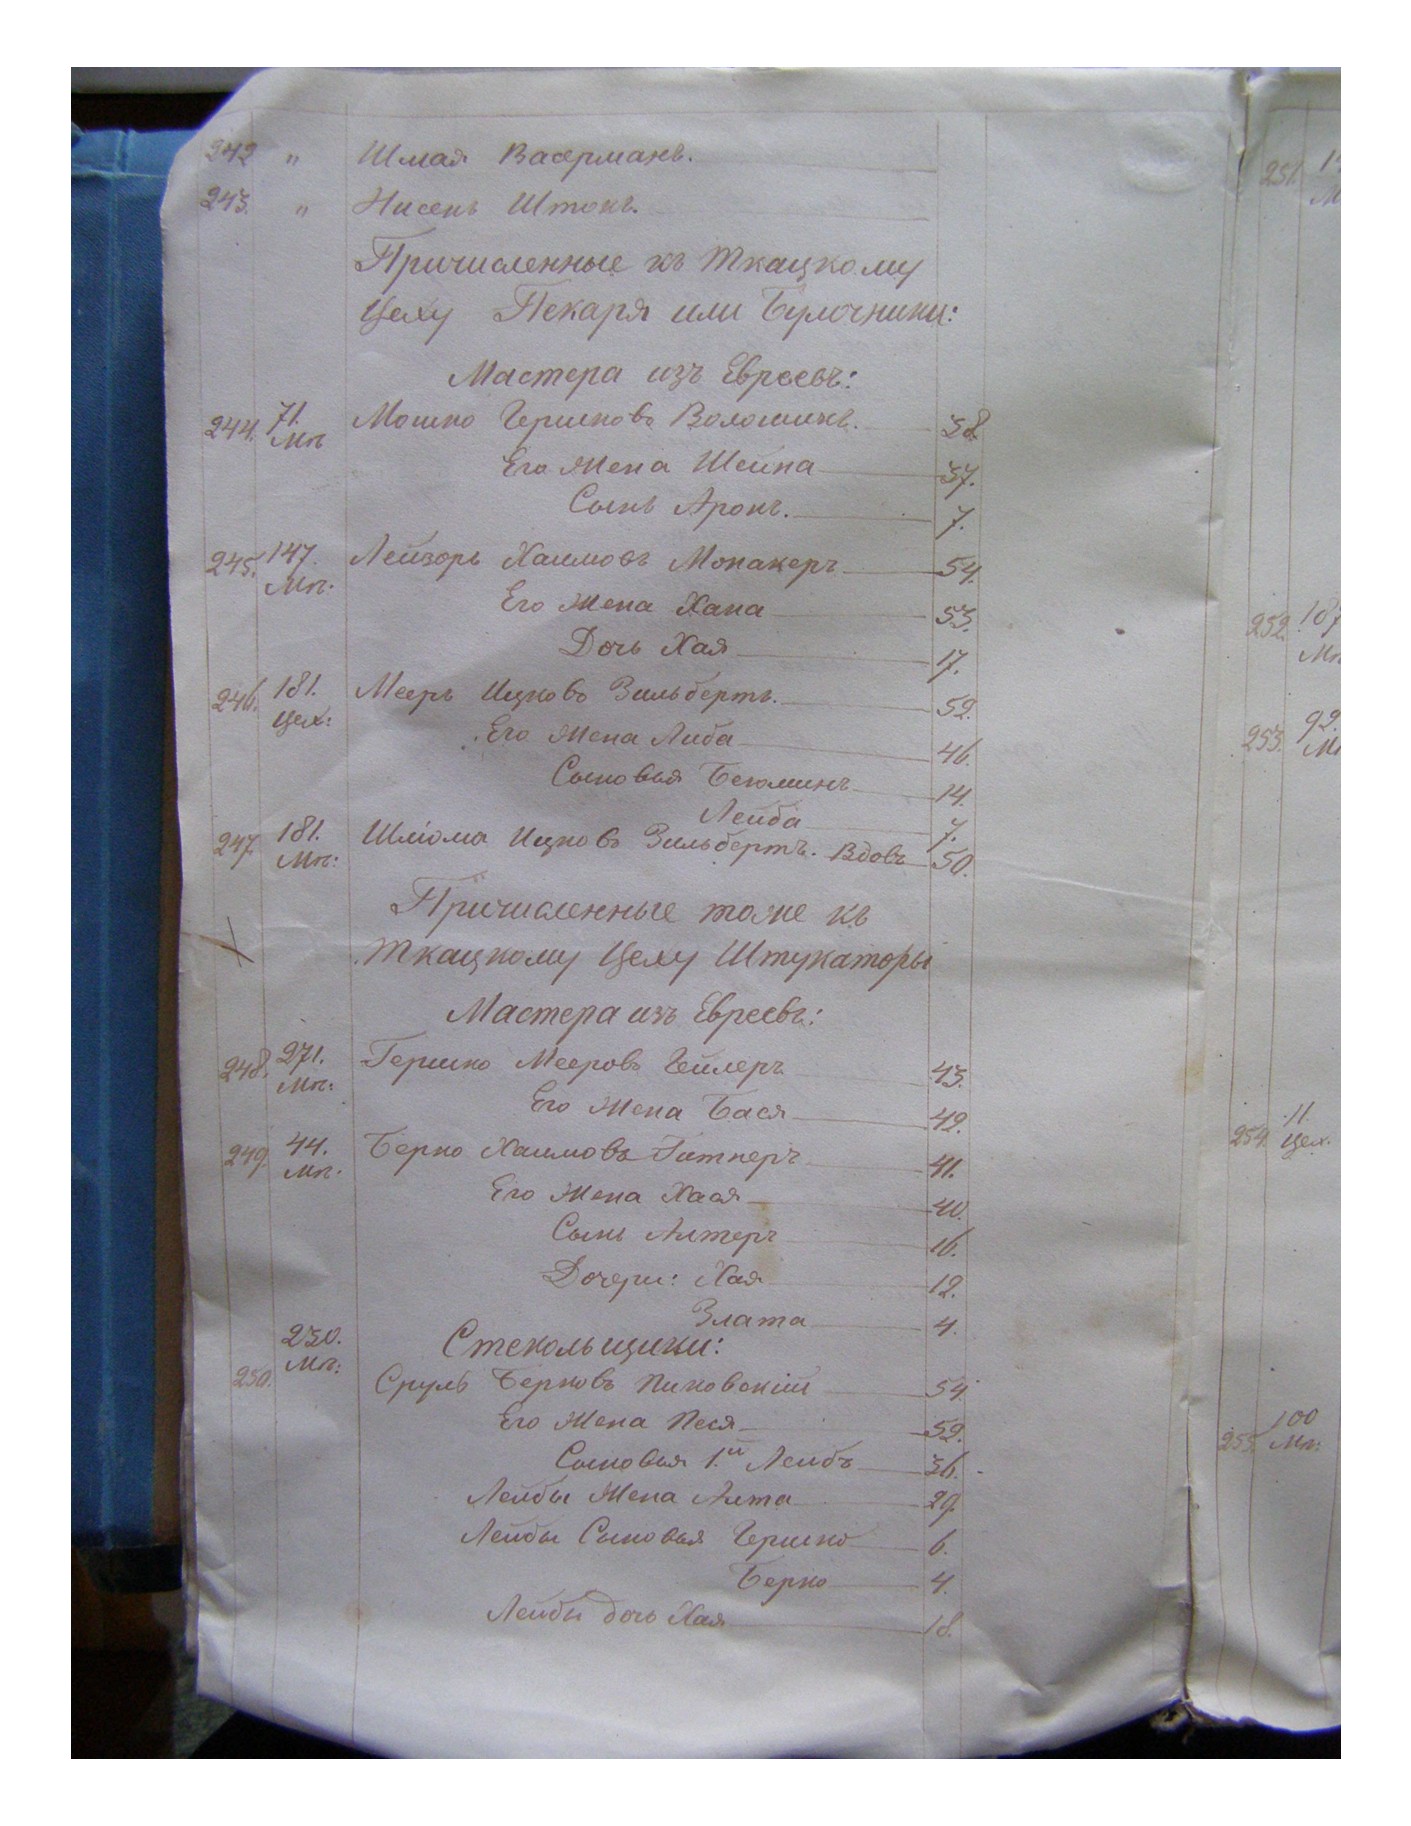 242 " Шмая Васерманъ.
243. " Нисенъ Штокъ.
Причисленные къ Ткацкому
Цеху Пекаря или Булочники:
Мастера изъ Евреевъ:
244. 71. Мп. Мошко Гершковъ Волошинъ. 38
Его Жена Шейна 37.
Сынъ Аронъ. 7.
245. 147. Мп. Лейзоръ Хаимовъ Монакеръ 54.
Его Жена Хана 53.
Дочь Хая 17.
246. 181. Цех: Мееръ Ицковъ Зильбертъ. 52.
Его Жена Либа 46.
Сыновья Беюминъ 14.
Лейба 7.
247. 181. Мп: Шліома Ицковъ Зильбертъ. Вдовъ 50.
Причисленные тоже къ
Ткацкому Цеху Штукаторы
Мастера изъ Евреевъ:
248. 271. Мп: Гершко Мееровъ Гейлеръ 43.
Его Жена Бася 42.
249. 44. Мп: Берко Хаимовъ Гитнеръ 41.
Его Жена Хася 40.
Сынъ Алтеръ 16.
Дочери: Хая 12.
Злата 4.
Стекольщики:
250. 230. Мп: Сруль Берковъ Пиковскій 54.
Его Жена Песя 52.
Сыновья 1.й Лейбъ 36.
Лейбы Жена Алта 29.
Лейбы Сыновья Гершко 6.
Берко 4.
Лейбы дочь Хая 18.
251.
252. 187
253. 92.
254. 11. Цех.
255. 100 Мп: